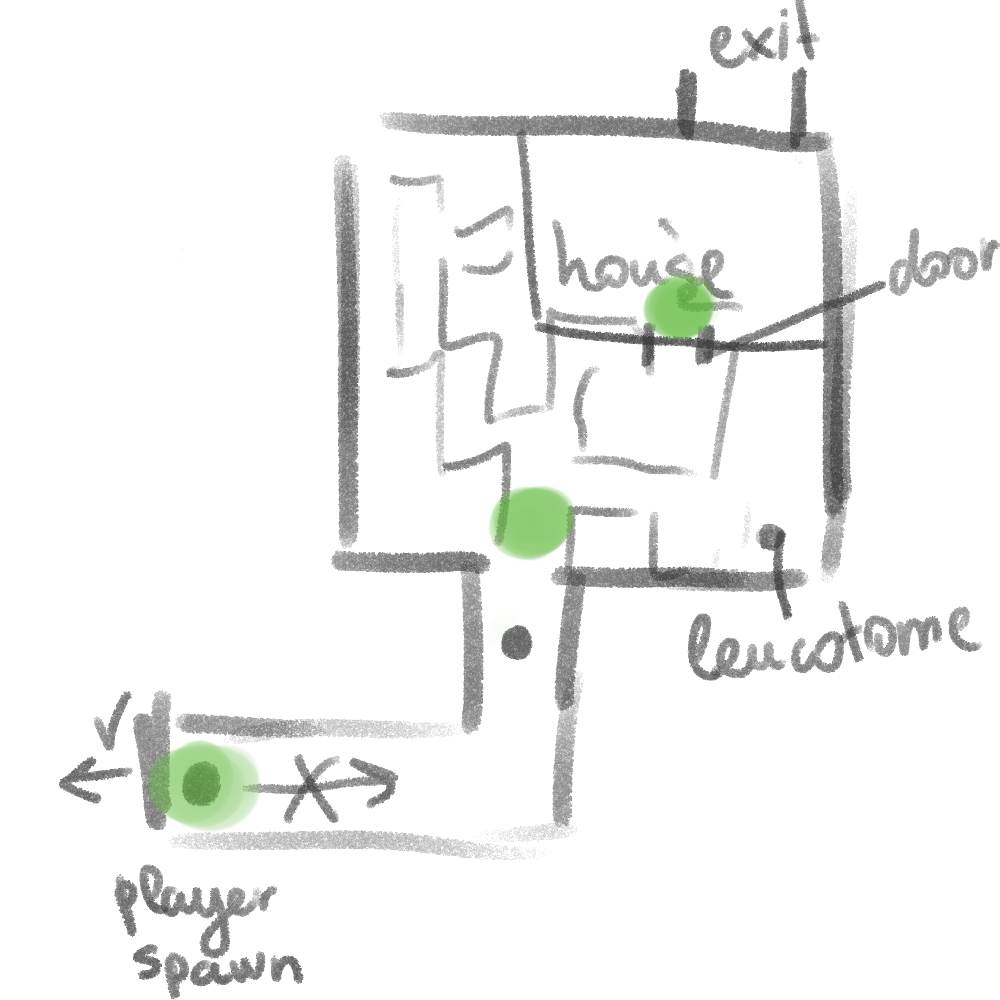 exit
house
door
leucotome
player
spawn